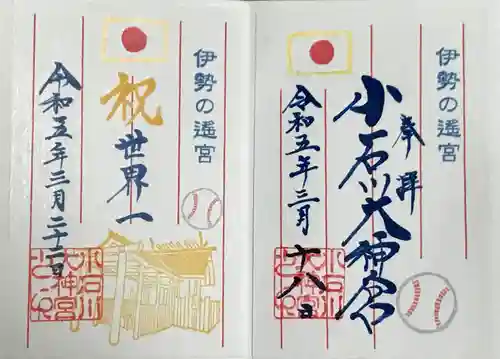 伊勢の遥宮
奉拝
小石川大神宮
令和五年三月十八日
小石川大神宮
伊勢の遥宮
祝
世界一
令和五年三月二十二日
小石川大神宮